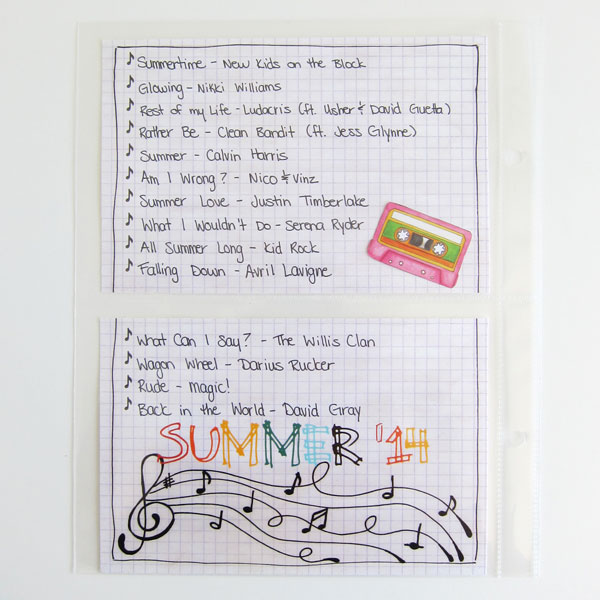 Summertime - New Kids on the Block
Glowing - Nikki Williams
Rest of my Life - Ludacris (ft. Usher & David Guetta)
Rather Be - Clean Bandit (ft. Jess Glynne)
Summer - Calvin Harris
Am I Wrong? - Nico & Vinz
Summer Love - Justin Timberlake
What I Wouldn't Do - Serena Ryder
All Summer Long - Kid Rock
Falling Down - Avril Lavigne
What Can I Say? - The Willis Clan
Wagon Wheel - Darius Rucker
Rude - Magic!
Back in the World - David Gray
SUMMER '14